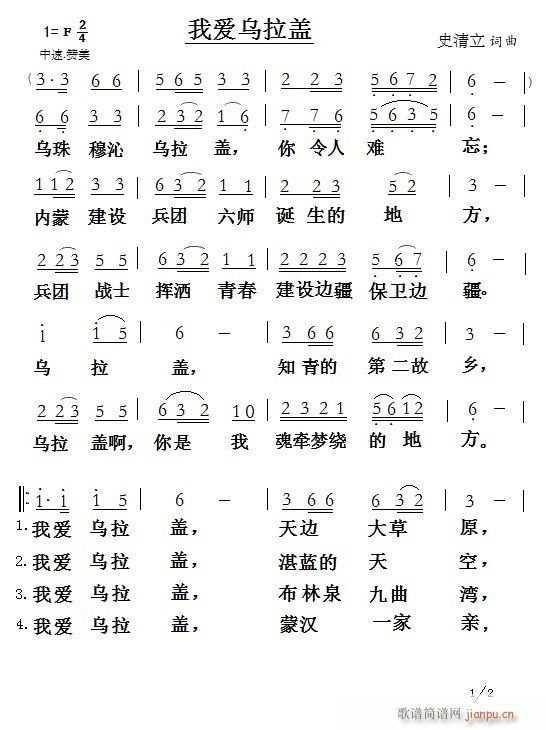 我爱乌拉盖
1= F 2/4
中速.赞美
史清立 词曲
( 3·3 6 6 | 5 6 5 3 3 | 2 2 3 | 5 6 7 2 | 6 - )
6 6 3 3 | 2 3 2 1 6 | 7 7 6 | 5 6 3 5 | 6 - |
乌珠 穆沁 乌拉 盖， 你 令人 难 忘；
1 1 2 3 3 | 6 3 2 1 1 | 2 2 3 | 5 2 | 6 - |
内蒙 建设 兵团 六师 诞 生的 地 方，
2 2 3 5 5 | 6 3 2 1 1 | 2 2 2 3 | 5 6 7 | 6 - |
兵团 战士 挥洒 青春 建设边疆 保卫边 疆。
1 1 5 | 6 - | 3 6 6 | 5 6 3 | 2 - |
乌 拉 盖， 知 青的 第 二故 乡，
2 2 3 5 5 | 6 3 2 1 0 | 2 3 2 1 | 5 6 1 2 | 6 - |
乌拉 盖啊， 你是 我 魂牵梦绕 的 地 方。
1·1 1 5 | 6 - | 3 6 6 | 6 3 2 | 3 - |
1. 我爱 乌拉 盖， 天边 大草 原，
2. 我爱 乌拉 盖， 湛蓝的 天 空，
3. 我爱 乌拉 盖， 布林泉 九曲 湾，
4. 我爱 乌拉 盖， 蒙汉 一家 亲，
1/2
歌谱简谱网
jianpu.cn